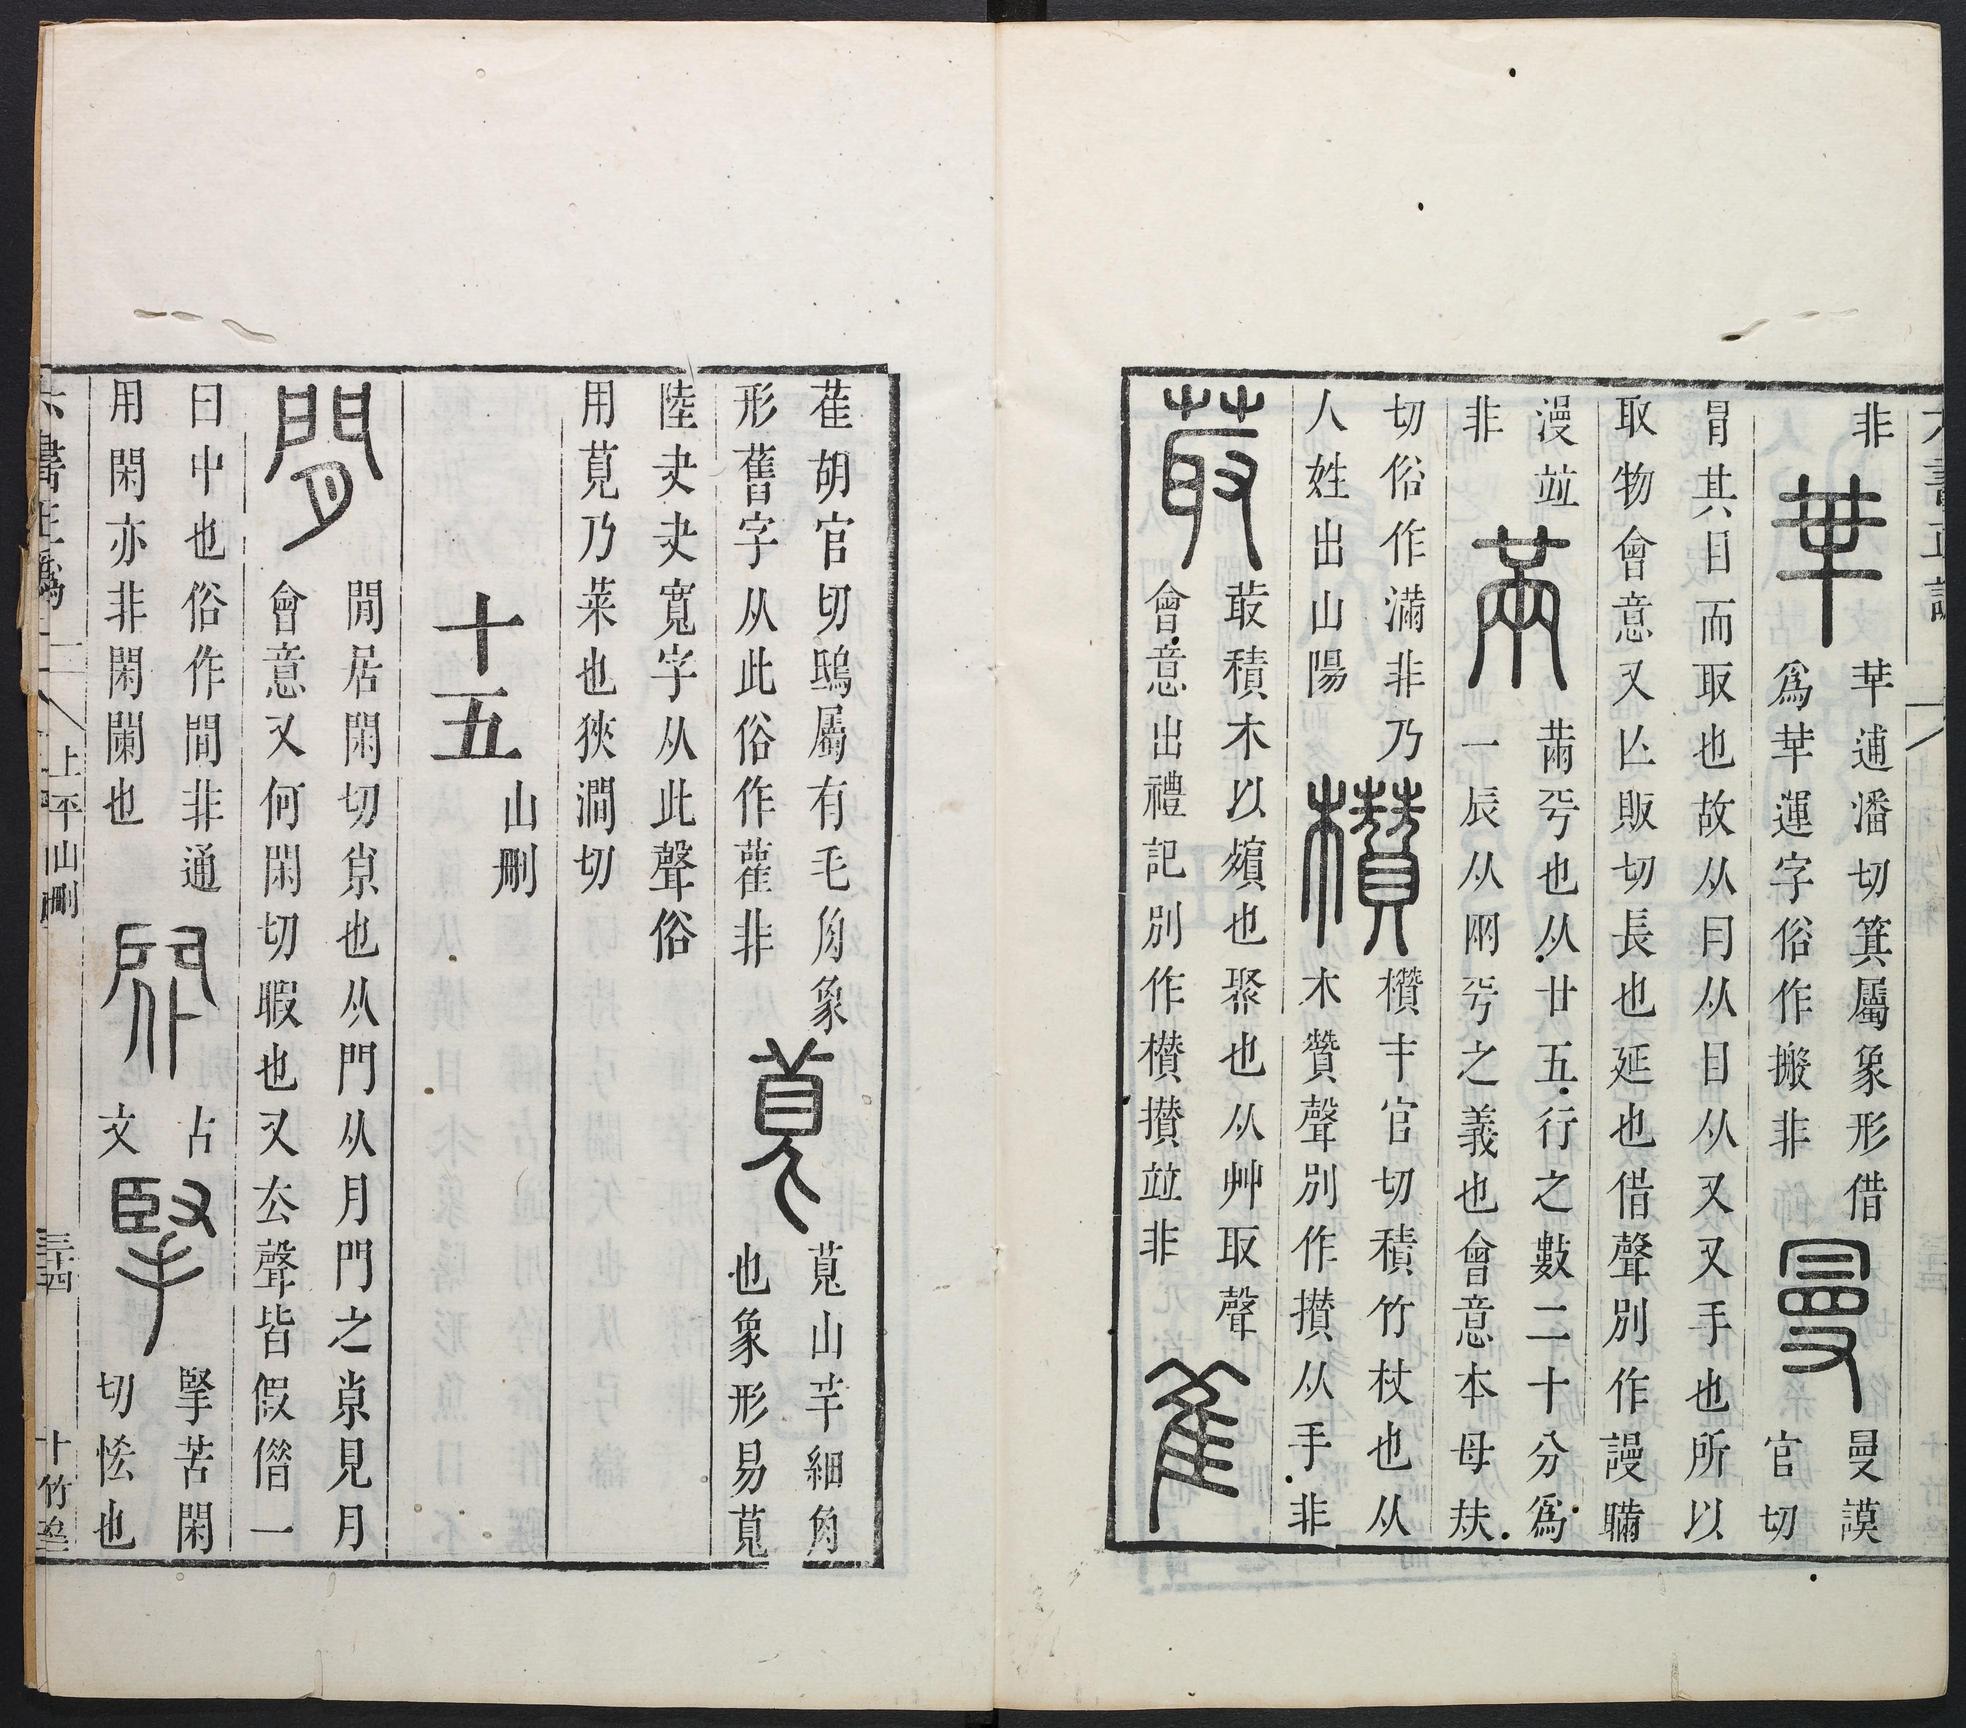 六書正譌
非
𠦒
𠦒逋潘切箕屬象形借
爲𠦒運字俗作搬非
曼
曼謨
官切
冒其目而取也故从冃从目从又又手也所以
取物會意又亾販切長也延也借聲別作謾䐽
漫竝
非
㒼
㒼㝵也从廿五行之數二十分爲
一辰从㒳㝵之義也會意本母䒟
切俗作滿非乃
欑
欑𠦄官切積竹杖也从
木贊聲別作攢从手非
人姓出山陽
菆
菆積木以殯也聚也从艸取聲
會意出禮記別作欑攢竝非
雈
雈胡官切鴟屬有毛角象
形舊字从此俗作雚非
萈
萈山羊細角
也象形易萈
陸夬夬寬字从此聲俗
用莧乃菜也狹澗切
十五
山刪
閒
閒居閑切𡭽也从門从月門之𡭽見月
會意又何閑切暇也又去聲皆假僭一
曰中也俗作間非通
用閑亦非閑闌也
古
文
掔
掔苦閑
切恡也
六書正譌
一
上平山刪
三十四
十竹齋